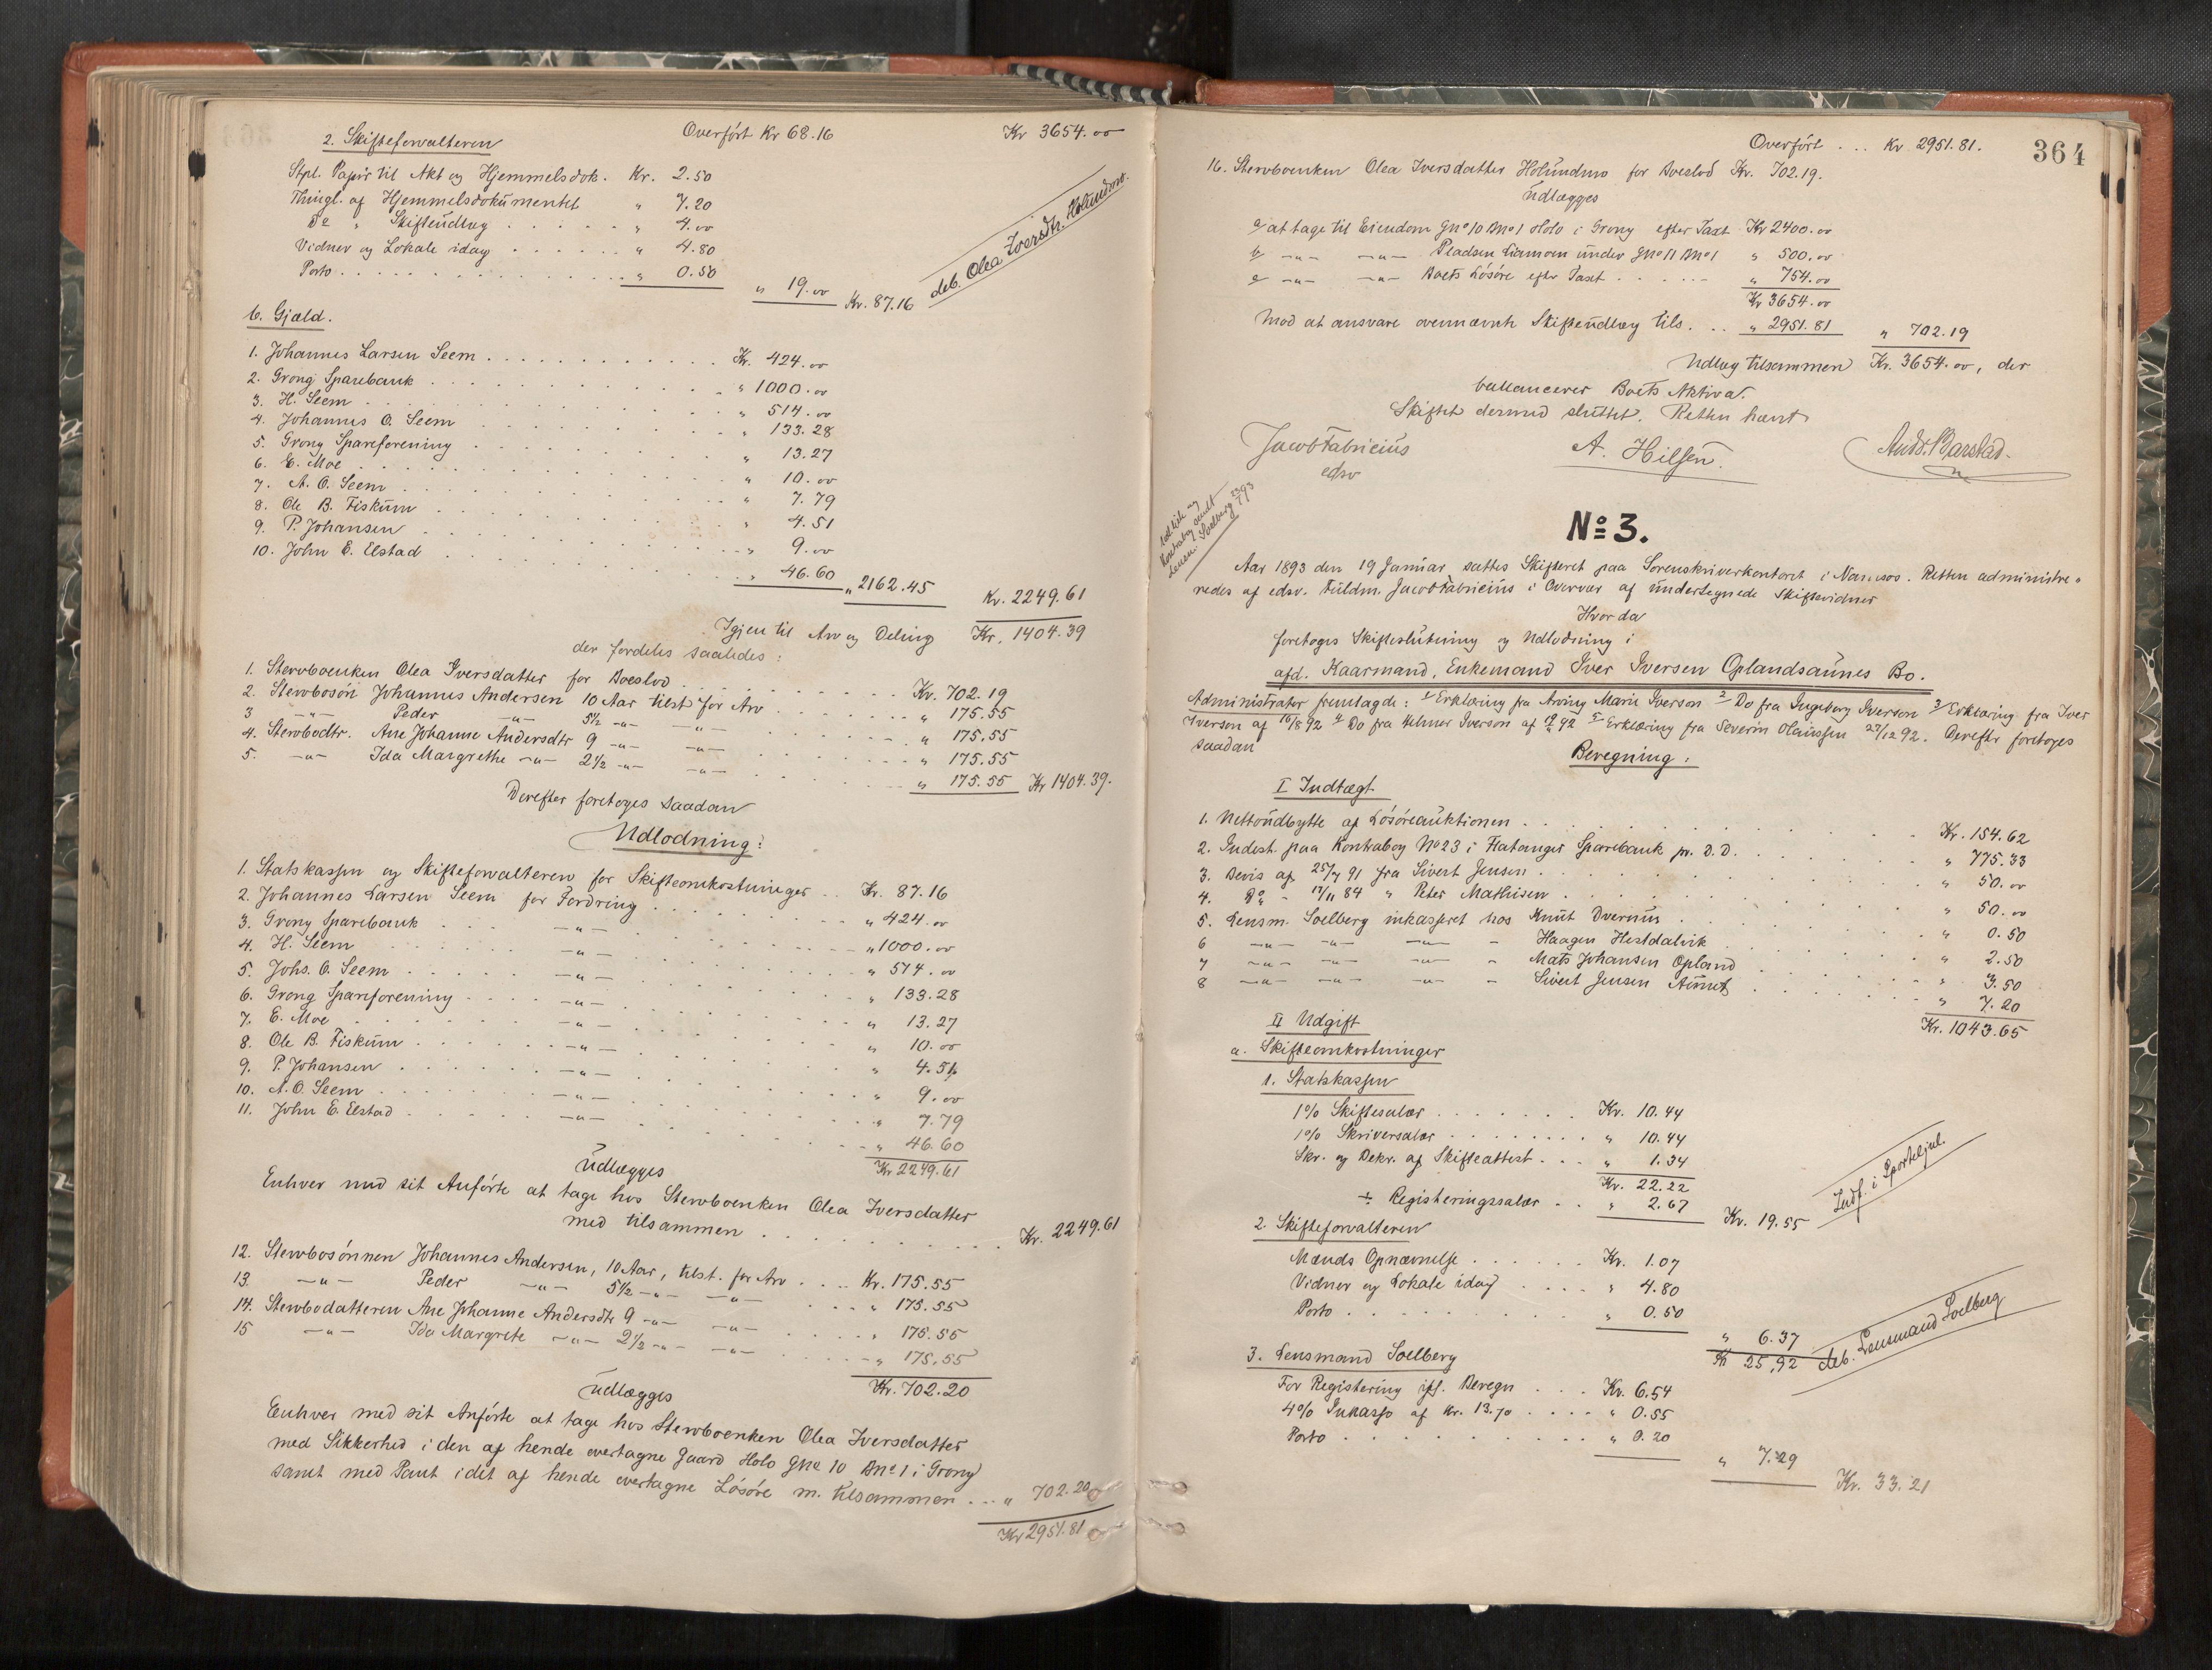 Overført Kr 68.16 Kr 3654.00
2. Skifteforvalteren
Stpl. Papir til Akt og Hjemmelsdok. Kr. 2.50
Thingl. af Hjemmelsdokumentet " 7.20
Do " Skifteudlæg . . . . . " 4.00
Vidner og Lokale idag . . . . . " 4.80
Porto . . . . . " 0.50
" 19.00 Kr. 87.16
deb. Olea Iversdtr. Holundmo.
b. Gjæld.
1. Johannes Larsen Seem . . . . . Kr. 424.00
2. Grong Sparebank . . . . . " 1000.00
3. H. Seem . . . . . " 514.00
4. Johannes O. Seem . . . . . " 133.28
5. Grong Spareforening . . . . . " 13.27
6. E. Moe . . . . . " 10.00
7. A. O. Seem . . . . . " 7.79
8. Ole B. Fiskum . . . . . " 4.51
9. P. Johansen . . . . . " 9.00
10. John E. Elstad . . . . . " 46.60
" 2162.45
Kr. 2249.61
Igjen til Arv og Deling Kr. 1404.39
der fordeles saaledes:
1. Stervboenken Olea Iversdatter for Boeslod . . . . . Kr. 702.19
2. Stervbosøn Johannes Andersen 10 Aar tilst for Arv . . . . . " 175.55
3 -"- Peder -"- 5½ -"- -"- . . . . . " 175.55
4. Stervbodtr. Ane Johanne Andersdtr 9 -"- -"- . . . . . " 175.55
5. -"- Ida Margrethe -"- 2½ -"- -"- . . . . . " 175.55 Kr 1404.39.
Derefter foretoges saadan
Udlodning:
1. Statskassen og Skifteforvalteren for Skifteomkostninger . . Kr. 87.16
2. Johannes Larsen Seem for Fordring . . . . . " 424.00
3. Grong Sparebank . . . -"- . . . . . " 1000.00
4. H. Seem . . . -"- . . . . . " 514.00
5. Johs. O. Seem . . . -"- . . . . . " 133.28
6. Grong Spareforening . . . -"- . . . . . " 13.27
7. E. Moe . . . -"- . . . . . " 10.00
8. Ole B. Fiskum . . . -"- . . . . . " 4.51
9. P. Johansen . . . -"- . . . . . " 9.00
10. A. O. Seem . . . -"- . . . . . " 7.79
11. John E. Elstad . . . -"- . . . . . " 46.60
Kr 2249.61
Udlægges
Enhver med sit Anførte at tage hos Stervboenken Olea Iversdatter
med tilsammen . . . . . Kr. 2249.61
12. Stervbosønnen Johannes Andersen, 10 Aar, tilst. for Arv . . . Kr. 175.55
13. -"- Peder -"- 5½ -"- -"- . . . " 175.55
14. Stervbodatteren Ane Johanne Andersdtr 9 -"- -"- . . . " 175.55
15 -"- Ida Margrete -"- 2½ -"- -"- . . . " 175.55
Kr. 702.20
Udlægges
Enhver med sit Anførte at tage hos Stervboenken Olea Iversdatter
med Sikkerhed i den af hende overtagne Gaard Holo Gno 10 Bno 1 i Grong
samt med Pant i det af hende overtagne Løsøre m. tilsammen . . . " 702.20
Kr 2951.81
364
Overført . . . Kr 2951.81.
16. Stervboenken Olea Iversdatter Holundmo for Boeslod Kr. 702.19.
Udlægges
a/ at tage til Eiendom Gno 10 Bno 1 Holo i Grong efter Taxt Kr 2400.00
b/ -"- -"- Pladsen Liamoen under Gno 11 Bno 1 " 500.00
c/ -"- -"- Boets Løsøre efter Taxt . . . . . " 754.00
Kr 3654.00
Mod at ansvare ovennævnte Skifteudlæg tils. . . " 2951.81 " 702.19
Udlæg tilsammen Kr. 3654.00, der
ballancerer Boets Aktiva.
Skiftet dermed sluttet. Retten hævet
Jacob Fabricius A. Hilsen. Ands. Barstad.
edsv
Kontrabog sendt
Lensm. Soelberg 23/1 93
No 3.
Aar 1893 den 19 Januar sattes Skifteret paa Sorenskriverkontoret i Namsos. Retten administre-
redes af edsv. Fuldm. Jacob Fabricius i Overvær af undertegnede Skiftevidner
Hvorda
foretoges Skifteslutning og Udlodning i
afd. Kaarmand, Enkemand Iver Iversen Oplandsaunes Bo.
Administrator fremlagde: 1/ Erklæring fra Aning Marie Iverson 2/ Do fra Ingeborg Iverson 3/ Erklæring fra Iver
Iverson af 10/8 92 4/ Do fra Helmer Iverson af 92 5/ Erklæring fra Severin Olaissen 27/12 92. Derefter foretoges
saadan
Beregning:
I Indtægt
1. Nettoudbytte af Løsøreauktionen . . . . . Kr. 154.62
2. Indest. paa Kontrabog No 23 i Flatanger Sparebank pr. D.D. . . . . . " 775.33
3. Bevis af 25/7 91 fra Sivert Jensen . . . . . " 50.00
4. Do - 17/11 84 " Peter Mathisen . . . . . " 50.00
5. Lensm. Soelberg inkasseret hos Knut Dvernus . . . . . " 0.50
6 -"- -"- -"- - Haagen Hestdalvik . . . . . " 2.50
7 -"- -"- -"- - Mats Johansen Opland . . . . . " 3.50
8 -"- -"- -"- - Sivert Jensen Aunet . . . . . " 7.20
Kr. 1043.65
II Udgift
a. Skifteomkostninger
1. Statskassen
1% Skiftesalær . . . . . Kr. 10.44
1% Skriversalær . . . . . " 10.44
Skr. og Dekr. af Skifteattest . . . " 1.34
Kr. 22.22
÷ Registeringssalær . . " 2.67
Kr. 19.55
Indf. i Sporteljnl.
2. Skifteforvalteren
Mænds Opnævnelse . . . . . Kr. 1.07
Vidner og Lokale idag . . . . " 4.80
Porto . . . . . " 0.50
" 6.37
Kr 25,92
deb. Lensmand Soelberg
3. Lensmand Soelberg
For Registering ifl. Beregn . . . Kr. 6.54
4% Inkasso af Kr. 13.70 . . . . " 0.55
Porto . . . . . " 0.20
" 7.29
Kr. 33.21